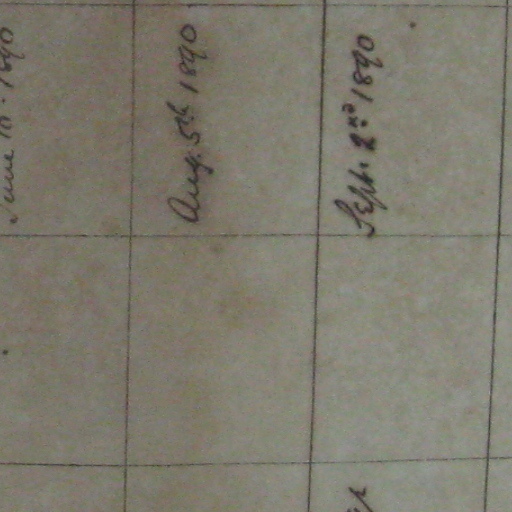 June 10. 1890
Aug. 5th 1890
Sept. 2nd 1890